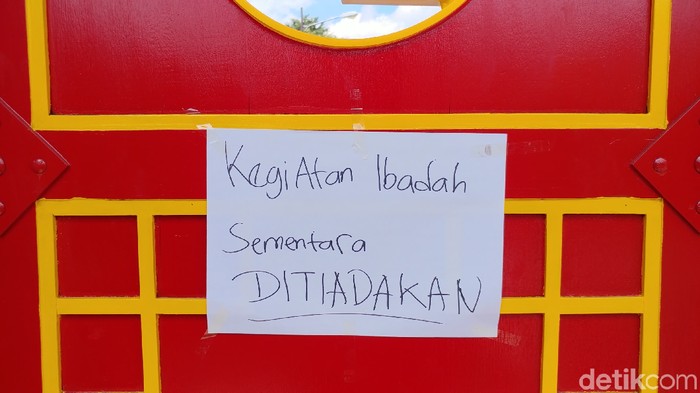 KegiAtan Ibadah
Sementara
DITIADAKAN
detikcom